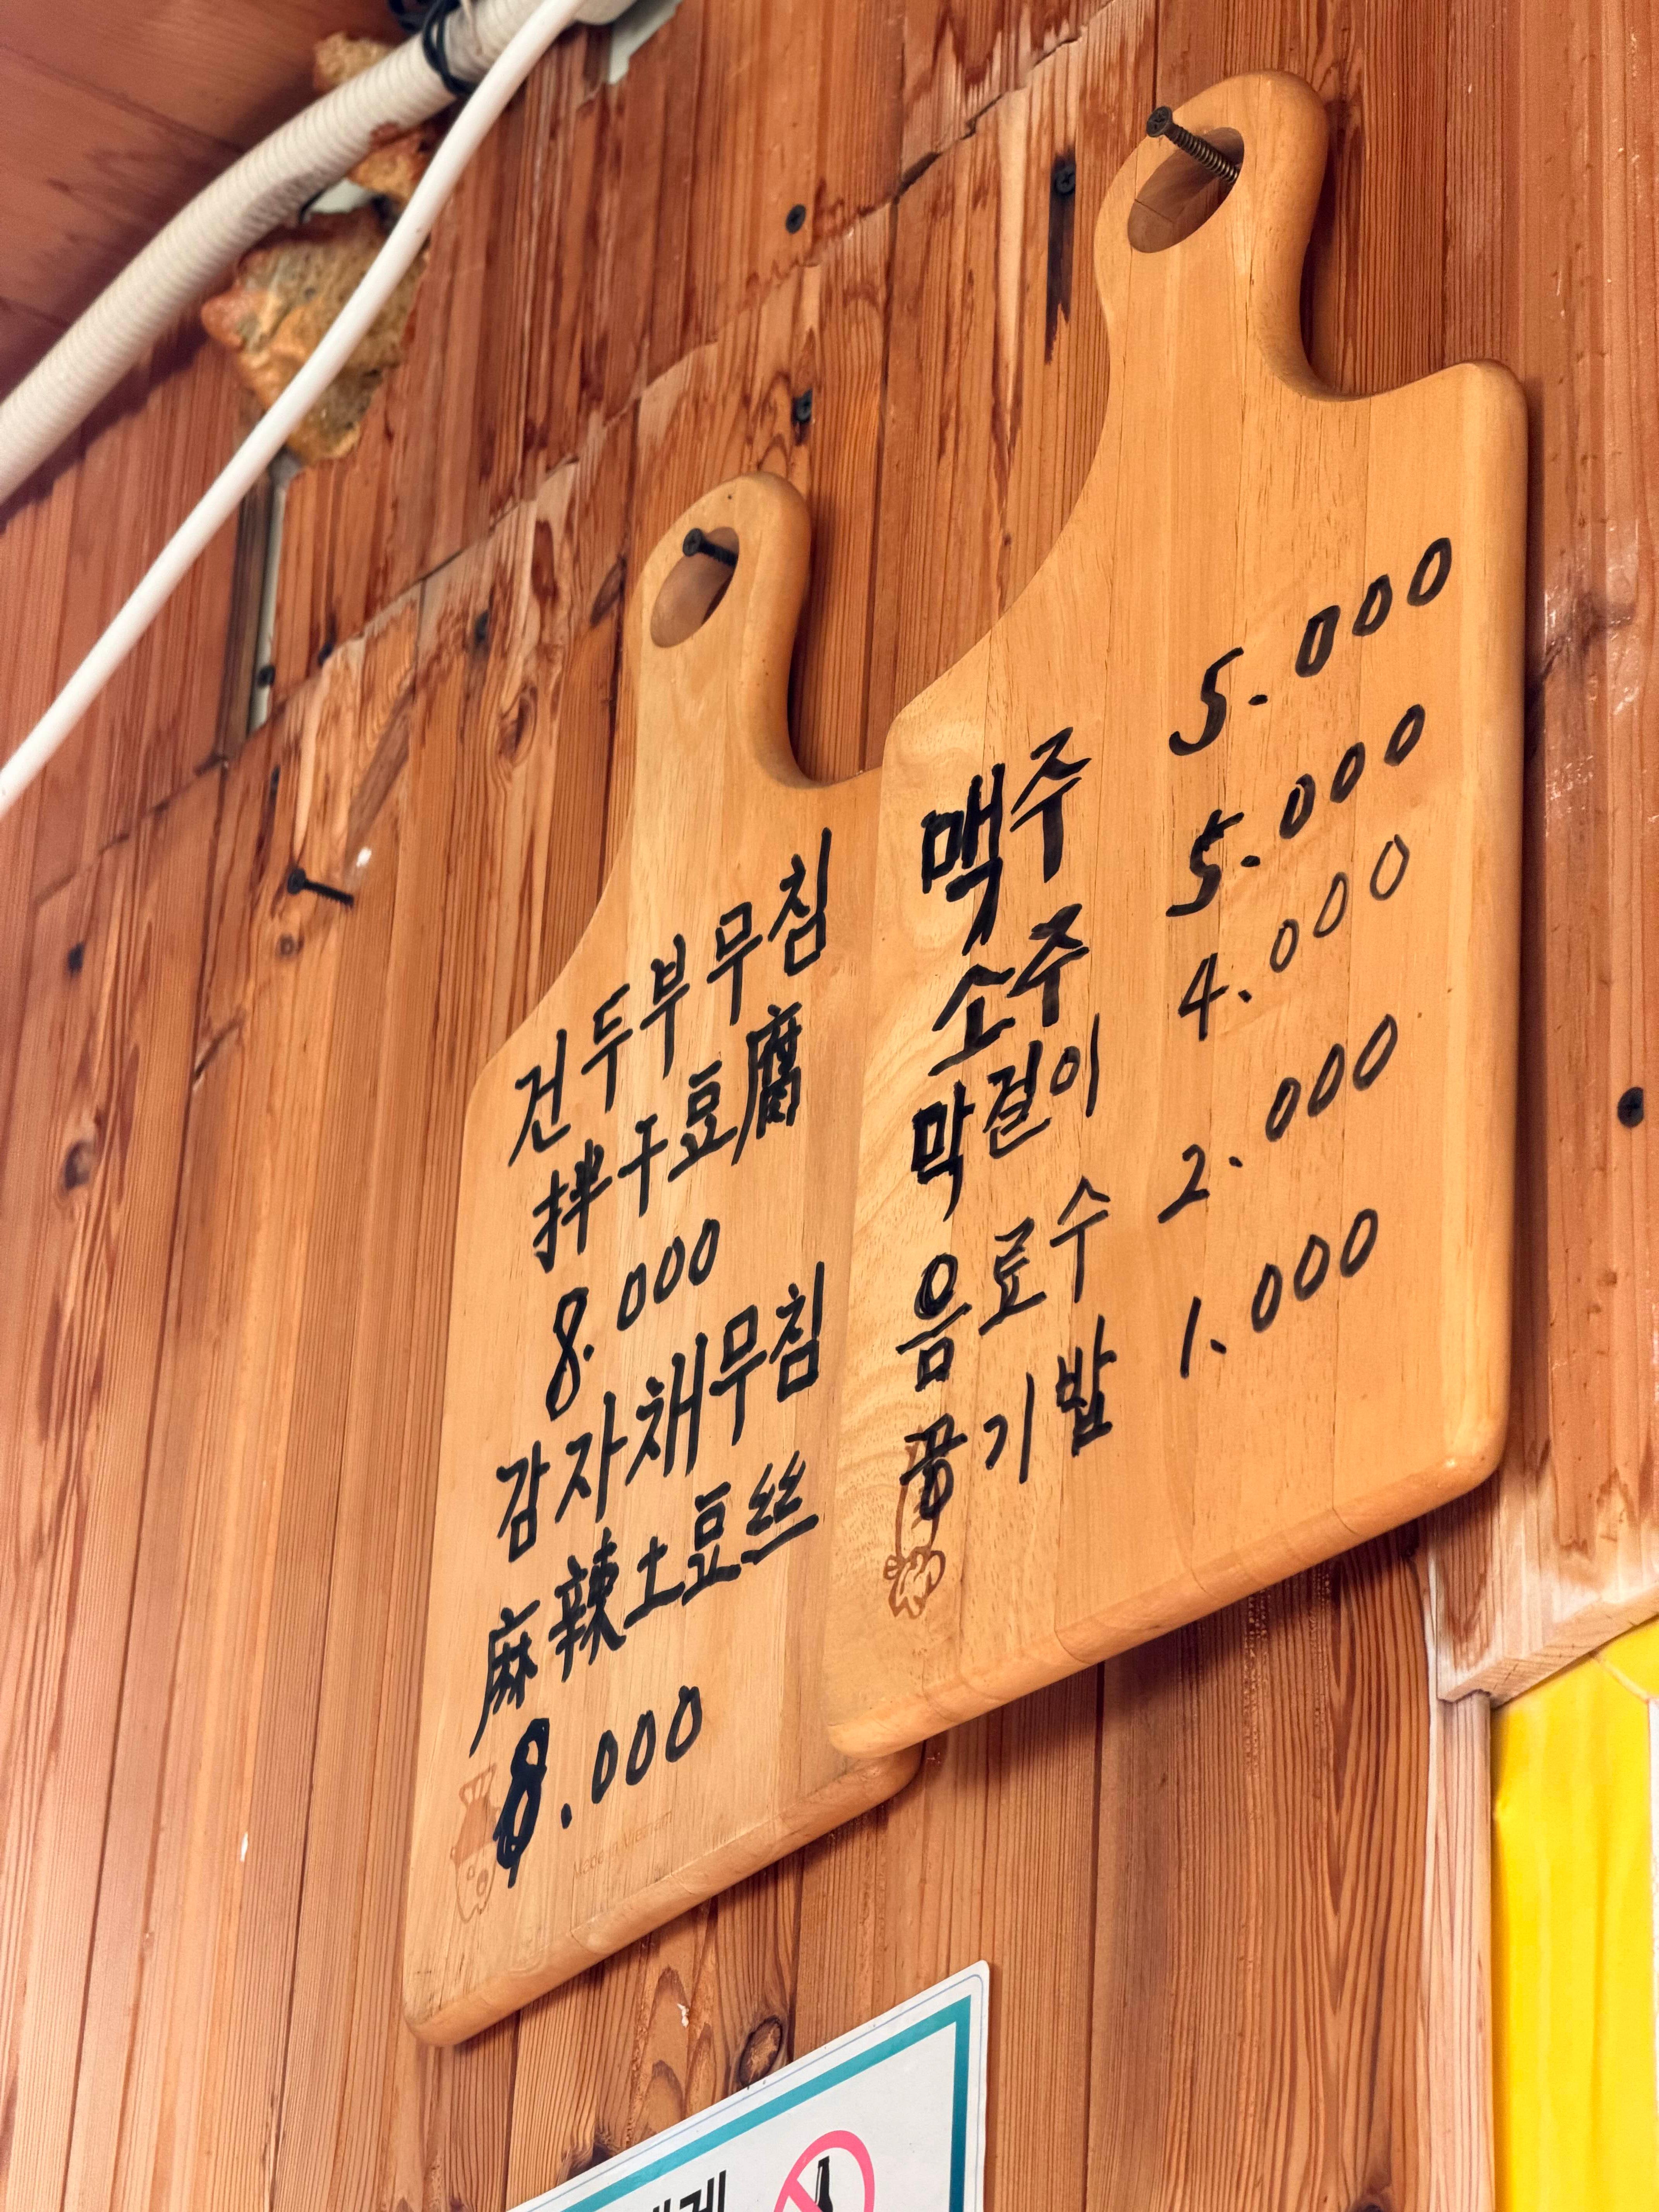 건두부무침
拌干豆腐
8.000
감자채무침
麻辣土豆丝
8.000
Made in Vietnam
맥주 5.000
소주 5.000
막걸이 4.000
음료수 2.000
공기밥 1.000